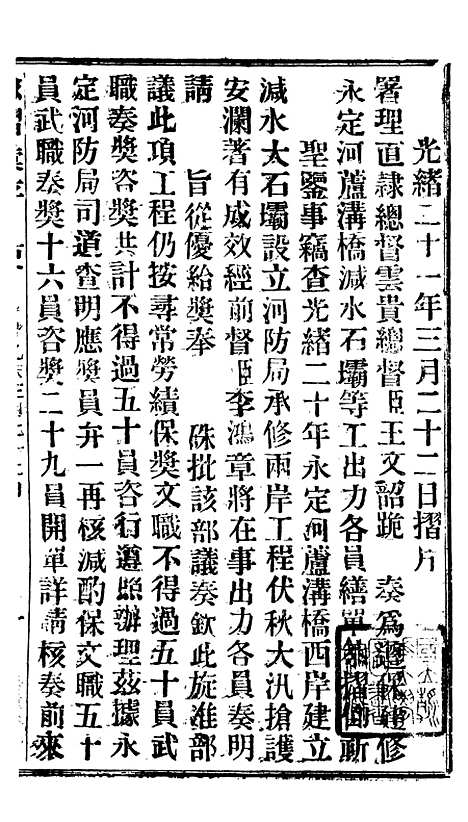 光緒二十一年三月二十二日摺片
署理直隸總督雲貴總督臣王文韶跪　奏爲遵旨修
永定河蘆溝橋減水石壩等工出力各員繕單仰祈
聖鑒事竊查光緒二十年永定河蘆溝橋西岸建立
減水大石壩設立河防局承修兩岸工程伏秋大汛搶護
安瀾著有成效經前督臣李鴻章將在事出力各員奏明
請　旨從優給獎奉　硃批該部議奏欽此旋准部
議此項工程仍按尋常勞績保獎文職不得過五十員武
職奏獎咨獎共計不得過五十員咨行遵照辦理茲據永
定河防局司道查明應獎員弁一再核減酌保文職五十
員武職奏獎十六員咨獎二十九員開單詳請核奏前來